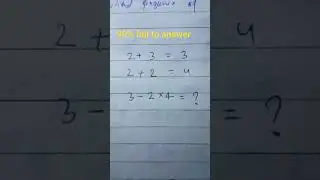 90% fail to answer
2 + 3 = 3
2 + 2 = 4
3 - 2 × 4 = ?